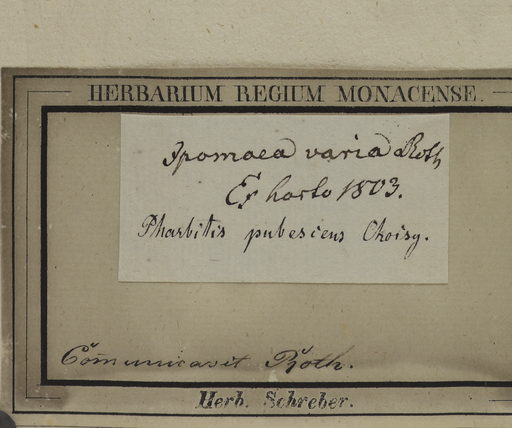 HERBARIUM REGIUM MONACENSE.
Ipomoea varia Roth
Ex horto 1803.
Pharbitis pubescens Choisy.
Communicavit Roth.
Herb. Schreber.